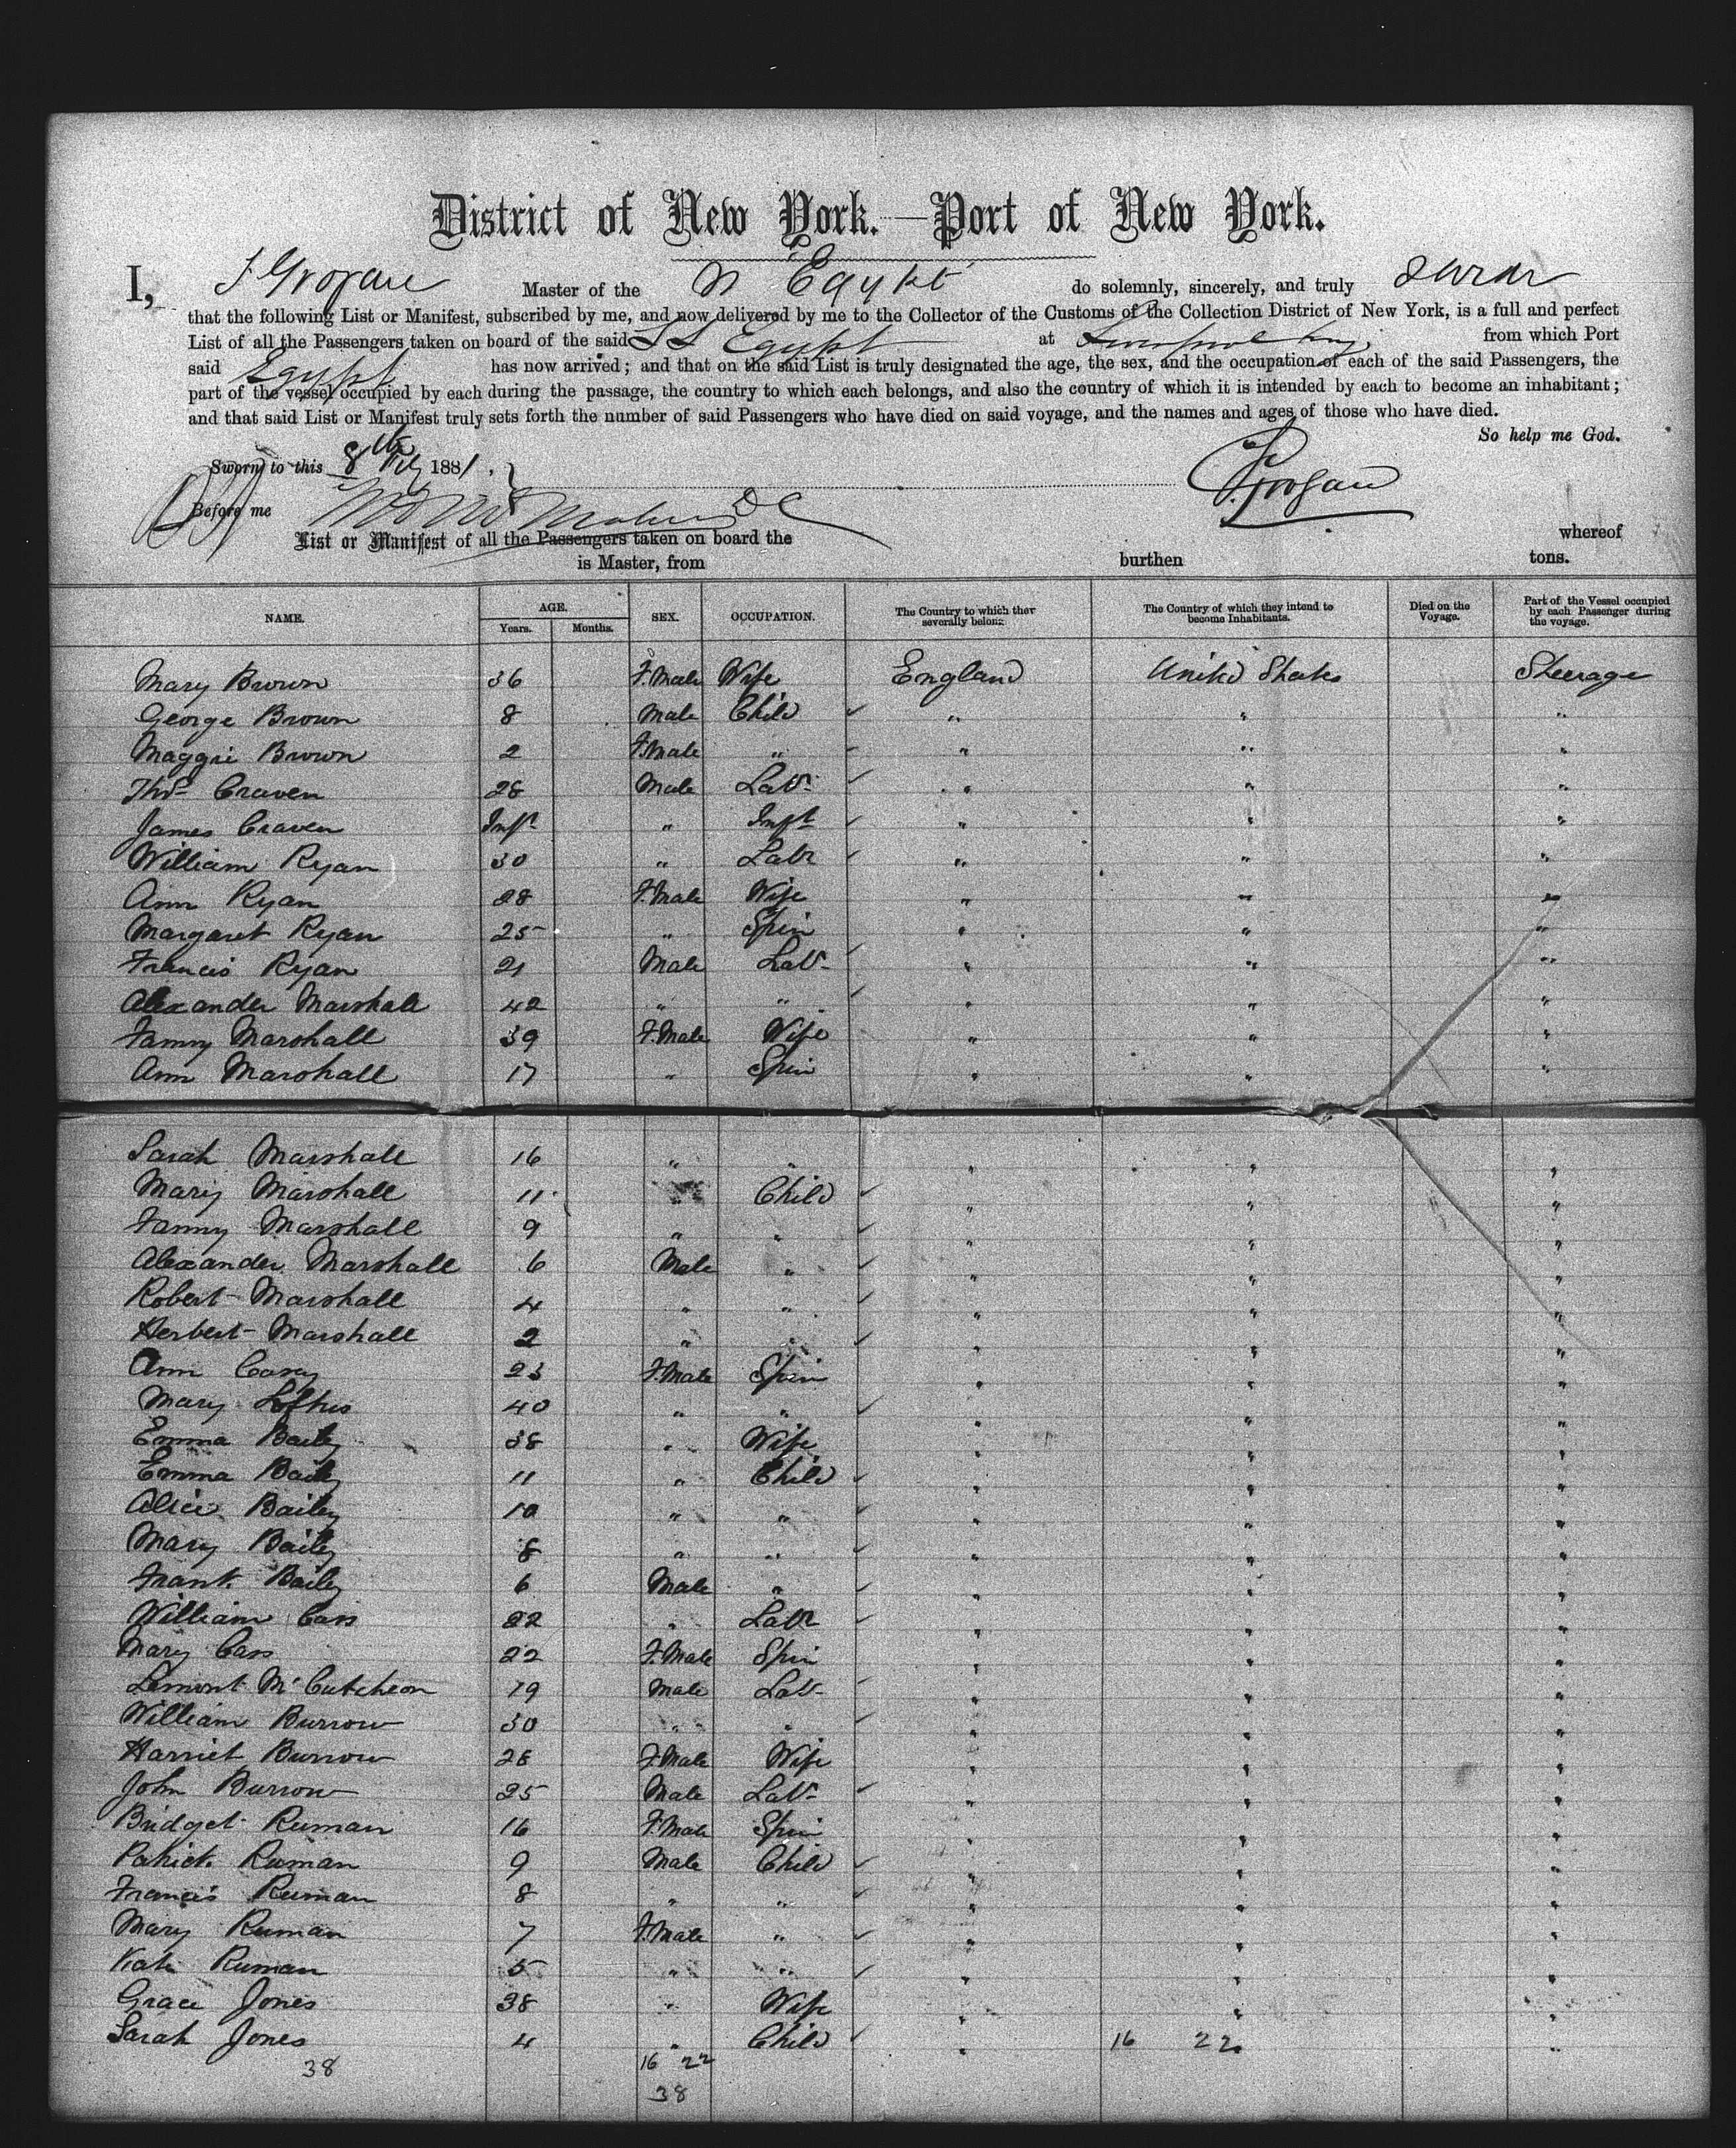 District of New York.—Port of New York.
I, J Grogan Master of the SS Egypt do solemnly, sincerely, and truly swear
that the following List or Manifest, subscribed by me, and now delivered by me to the Collector of the Customs of the Collection District of New York, is a full and perfect
List of all the Passengers taken on board of the said SS Egypt at Liverpool from which Port
said Egypt has now arrived; and that on the said List is truly designated the age, the sex, and the occupation of each of the said Passengers, the
part of the vessel occupied by each during the passage, the country to which each belongs, and also the country of which it is intended by each to become an inhabitant;
and that said List or Manifest truly sets forth the number of said Passengers who have died on said voyage, and the names and ages of those who have died.
So help me God.
Sworn to this 8th 1881. Grogan
Before me
List or Manifest of all the Passengers taken on board the whereof
is Master, from burthen tons.
NAME. AGE. Years. Months. SEX. OCCUPATION. The Country to which they severally belong. The Country of which they intend to become Inhabitants. Died on the Voyage. Part of the Vessel occupied by each Passenger during the voyage.
Mary Brown 36 F.Male Wife England United States Steerage
George Brown 8 Male Child " " "
Maggie Brown 2 F.Male " " " "
Thos Craven 28 Male Labr " " "
James Craven Inft " Inft " " "
William Ryan 30 " Labr " " "
Ann Ryan 28 F.Male Wife " " "
Margaret Ryan 25 " Spin " " "
Francis Ryan 21 Male Labr " " "
Alexander Marshall 42 " " " " "
Fanny Marshall 39 F.Male Wife " " "
Ann Marshall 17 " Spin " " "
Sarah Marshall 16 " " " " "
Mary Marshall 11 " Child " " "
Fanny Marshall 9 " " " " "
Alexander Marshall 6 Male " " " "
Robert Marshall 4 " " " " "
Herbert Marshall 2 " " " " "
Ann Casey 23 F.Male Spin " " "
Mary Loftus 40 " " " " "
Emma Bailey 38 " Wife " " "
Emma Bailey 11 " Child " " "
Alice Bailey 10 " " " " "
Mary Bailey 8 " " " " "
Frank Bailey 6 Male " " " "
William Cass 22 " Labr " " "
Mary Cass 22 F.Male Spin " " "
Lemont McCutcheon 19 Male Labr " " "
William Burrow 30 " " " " "
Harriet Burrow 28 F.Male Wife " " "
John Burrow 25 Male Labr " " "
Bridget Ruman 16 F.Male Spin " " "
Patrick Ruman 9 Male Child " " "
Francis Ruman 8 " " " " "
Mary Ruman 7 F.Male " " " "
Kate Ruman 5 " " " " "
Grace Jones 38 " Wife " " "
Sarah Jones 4 " Child " 16 22 "
38 16 22
38